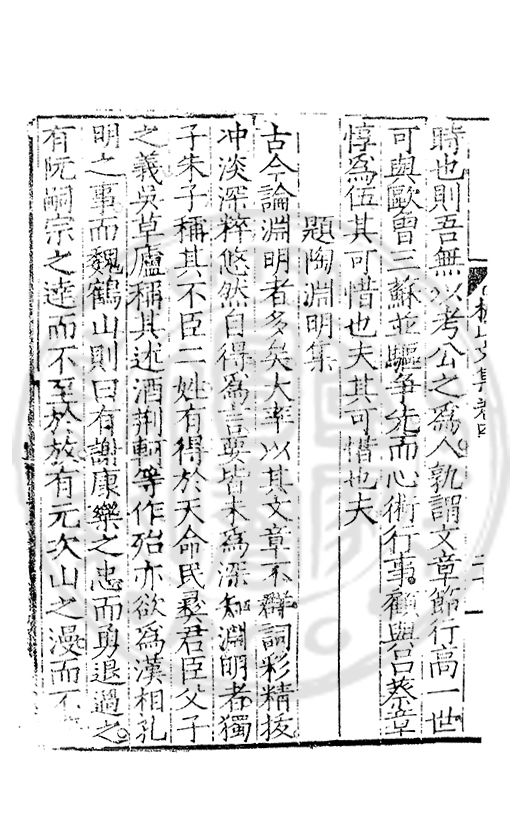 時也則吾無以考公之為人孰謂文章節行高一世
可與歐曾三蘇並驅爭先而心術行事顧與呂蔡章
惇為伍其可惜也夫其可惜也夫
題陶淵明集
古今論淵明者多矣大率以其文章不羣詞彩精拔
冲淡深粹悠然自得為言要皆未為深知淵明者獨
子朱子稱其不臣二姓有得於天命民彝君臣父子
之義吳草廬稱其述酒荆軻等作殆亦欲為漢相孔
明之事而魏鶴山則曰有謝康樂之忠而勇退過之
有阮嗣宗之達而不至於放有元次山之漫而不